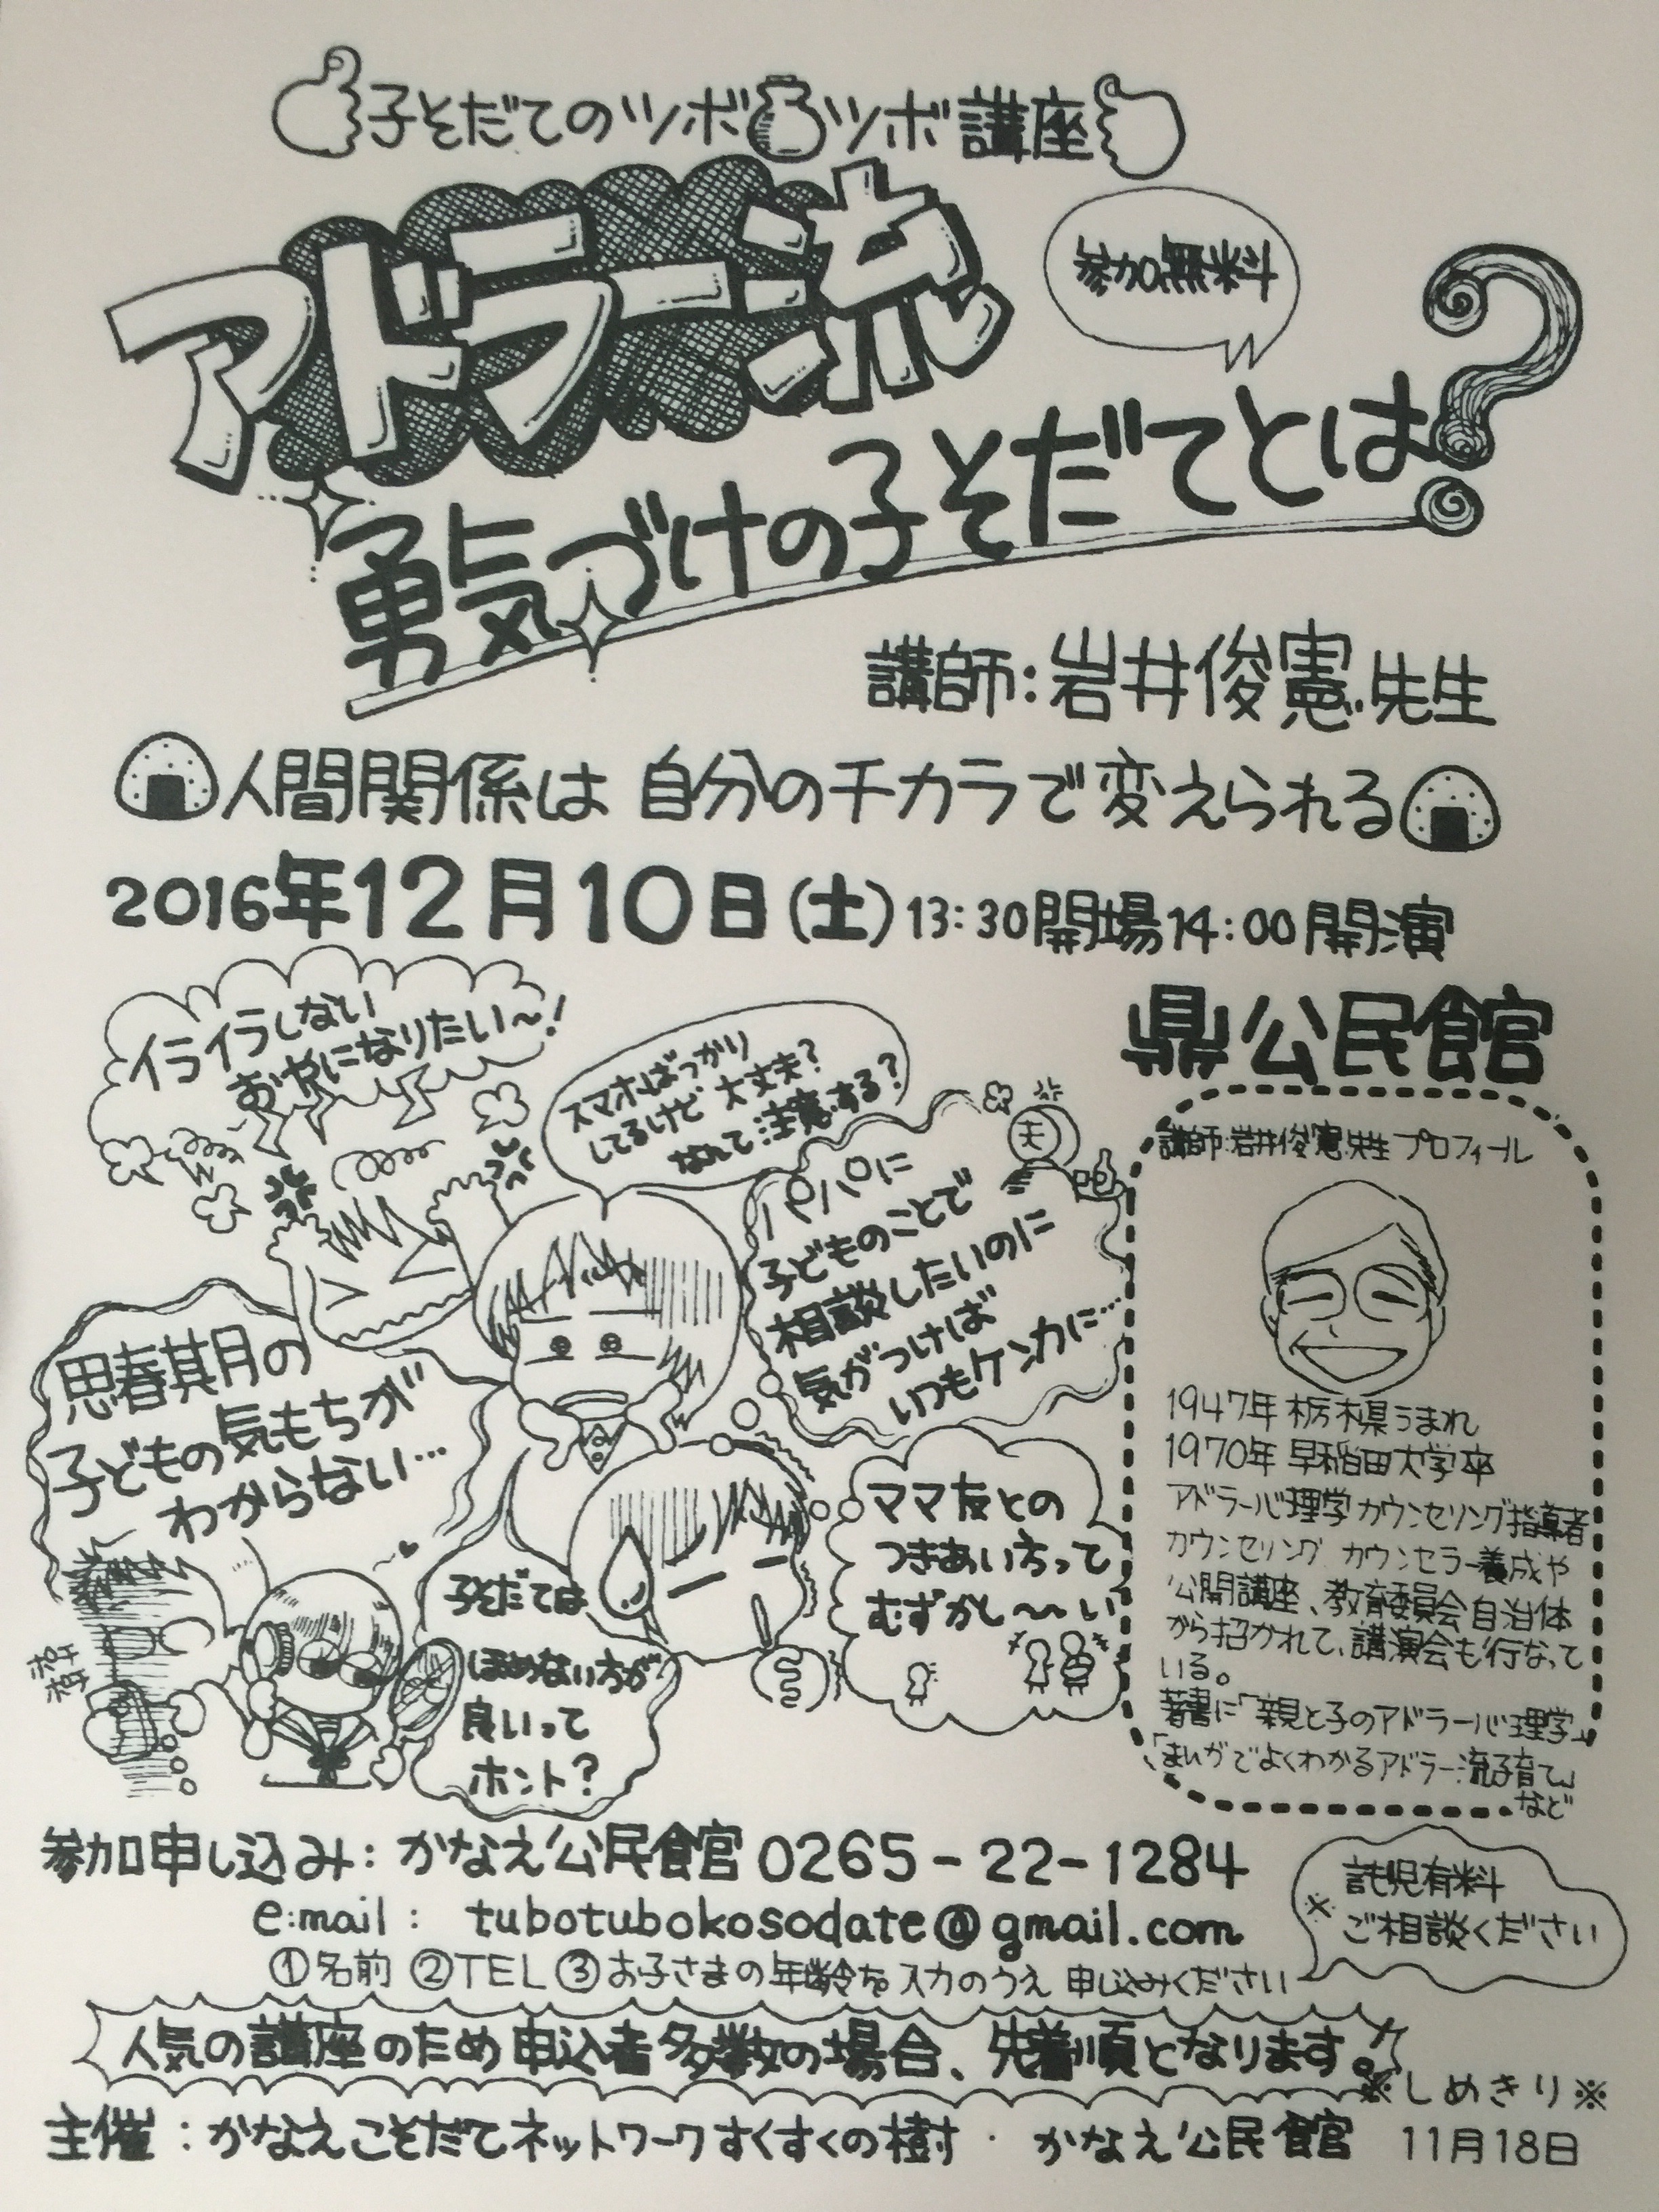 子そだてのツボツボ講座
アドラー流
参加無料
勇気づけの子そだてとは?
講師:岩井俊憲先生
人間関係は自分のチカラで変えられる
2016年12月10日(土)13:30開場14:00開演
鼎公民館
イライラしない
おやになりたい~!
スマホばっかり
してるけど大丈夫?
なれて注意する?
夫
パパに
子どものことで
相談したいのに
気がつけば
いつもケンカに…
思春期の
子どもの気もちが
わからない…
ママ友との
つきあいちって
むずかし~~い
子そだては
ほめない方が
良いって
ホント?
講師:岩井俊憲先生プロフィール
1947年栃木県うまれ
1970年早稲田大学卒
アドラー心理学カウンセリング指導者
カウンセリング カウンセラー養成や
公開講座、教育委員会自治体
から招かれて、講演会も行なって
いる。
著書に「親と子のアドラー心理学」
「まんがでよくわかるアドラー流子育て」
など
参加申し込み:かなえ公民館 0265-22-1284
e:mail: tubotubokosodate@gmail.com
①名前 ②TEL ③お子さまの年齢を入力のうえ 申し込みください
※託児有料
ご相談ください
人気の講座のため申込者多数の場合、先着順となります。
※しめきり※
11月18日
主催:かなえこそだてネットワークすくすくの樹・かなえ公民館